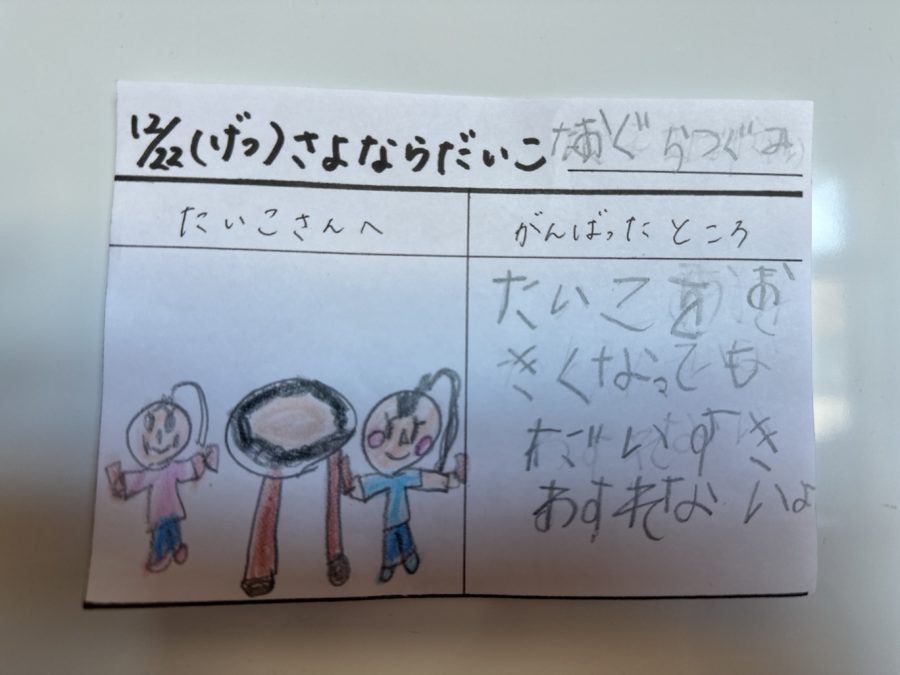 12/22(げつ)さよならだいこ おぐらつぐみ
たいこさんへ
がんばったところ
たいこをお
きくなっても
だいすき
わすれないよ